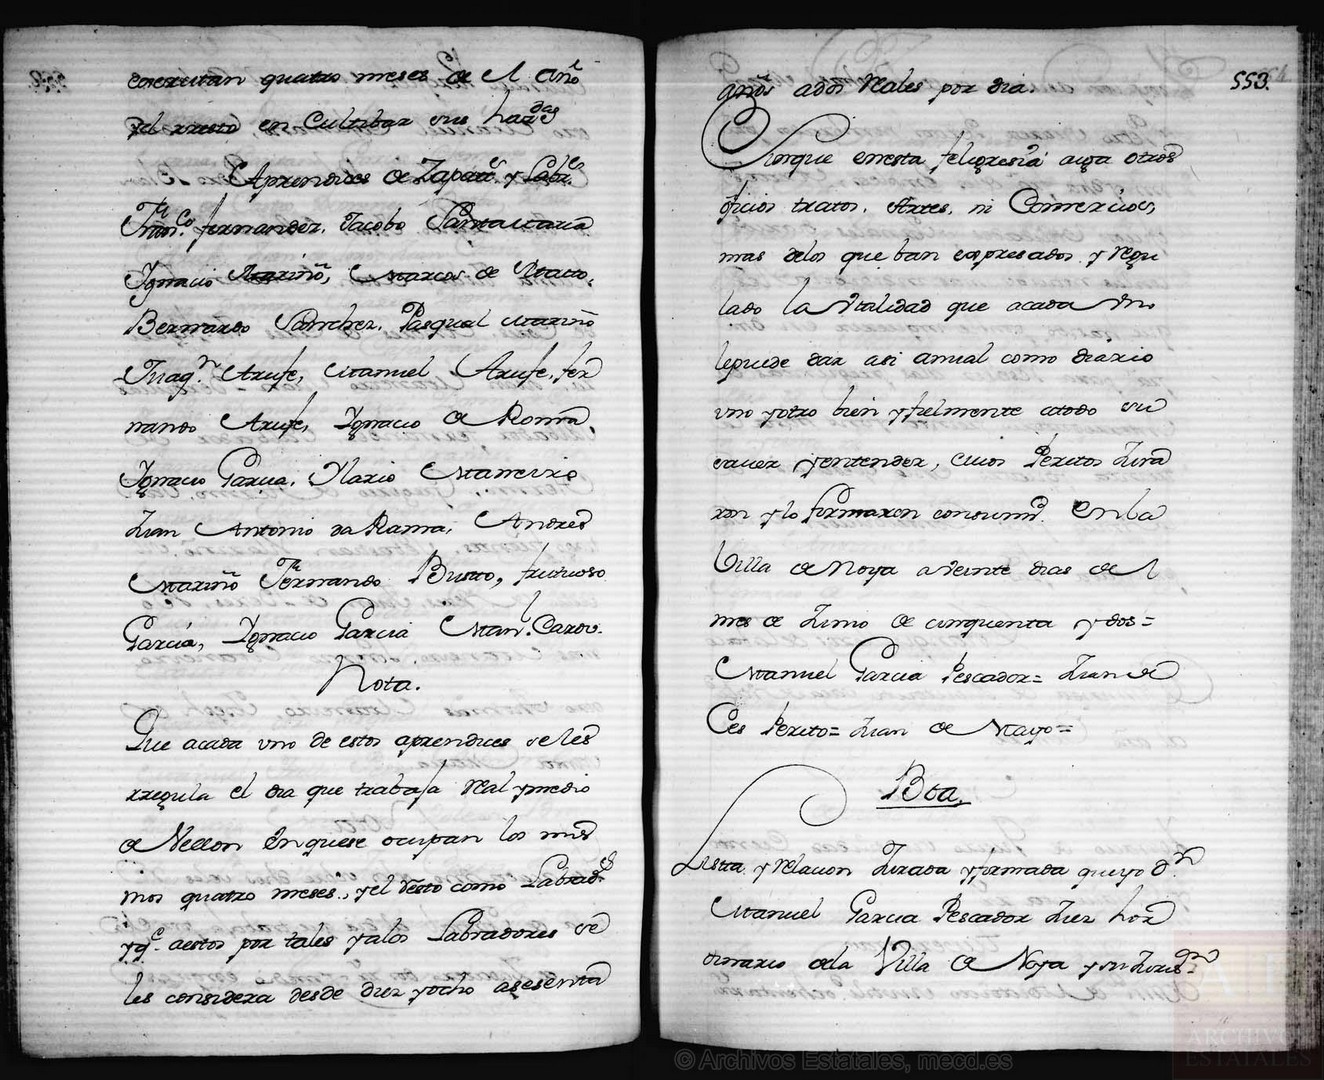 exerzitan quatro meses de el Año
y el rresto en Cultibar sus haz.das
Aprendizes de Zapat.s y Labr.es
Fran.co fernandez, Jacobo Santa maria
Ygnacio Mariño, Marcos de
Bernardo Sanchez, Pasqual Mariño
Juaq.n Arufe, Manuel Arufe, fer
nando Arufe, Ygnacio de Roma,
Ygnacio Garcia, Ylario
Juan Antonio da Rama, Andres
Mariño Fernando Busto, frutuoso
Garcia, Ygnacio Garcia Man.l
Nota.
Que acada vno de estos aprendizes seles
rregula el dia que trabaja Real y medio
de Vellon en que se ocupan los mis
mos quatro meses, y el Resto como Labrad.es
y q.e aestos por tales y alos Labradores se
les considera desde diez y ocho asesenta
años ados Reales por dia.
Yporque enesta feligresia aiga otros
oficios tratos, Artes, ni Comerzios,
mas delos que ban expresados, y regu
lado la vtalidad que acada vno
lepuede dar asi anual como diario
vno yotro bien yfielmente atodo su
saver yentender, cuios Peritos Jura
ron y lo formaron consumd. Enla
Villa de Noya aveinte dias de el
mes de Junio de cinquenta y dos=
Manuel Garcia Pescador= Juan de
Ces Perito= Juan de Mayo=
Boa.
Lista y Relacion Jurada yformada queyo d.n
Manuel Garcia Pescador Juez hor
dinario dela Villa de Noya y su Juris.on
553.
© Archivos Estatales, mecd.es
ARCHIVOS
ESTATALES